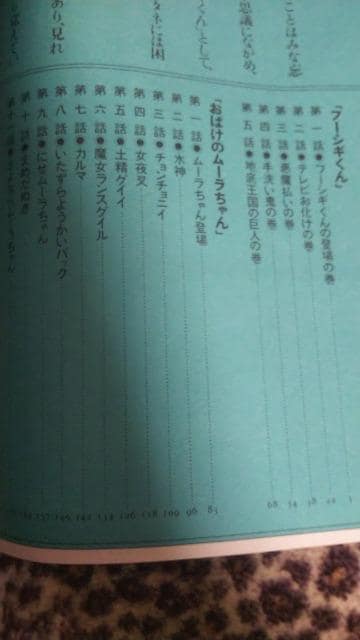 ことはみな悲
思議にながめ、
くん」として、
タネには困
あり、見れ
「フーシギくん」
第一話●フーシギくんの登場の巻
第二話●テレビお化けの巻 22
第三話●悪魔払いの巻 38
第四話●手洗い鬼の巻 54
第五話●地底王国の巨人の巻 68
「おばけのムーラちゃん」
第一話●ムーラちゃん登場 83
第二話●水神 96
第三話●チョンチョニイ 109
第四話●女夜叉 118
第五話●土精クイイ 126
第六話●魔女ランスグイル 134
第七話●カルマ 142
第八話●いたずらようかいパック
第九話●にせムーラちゃん 157
第十話●まめだぬき